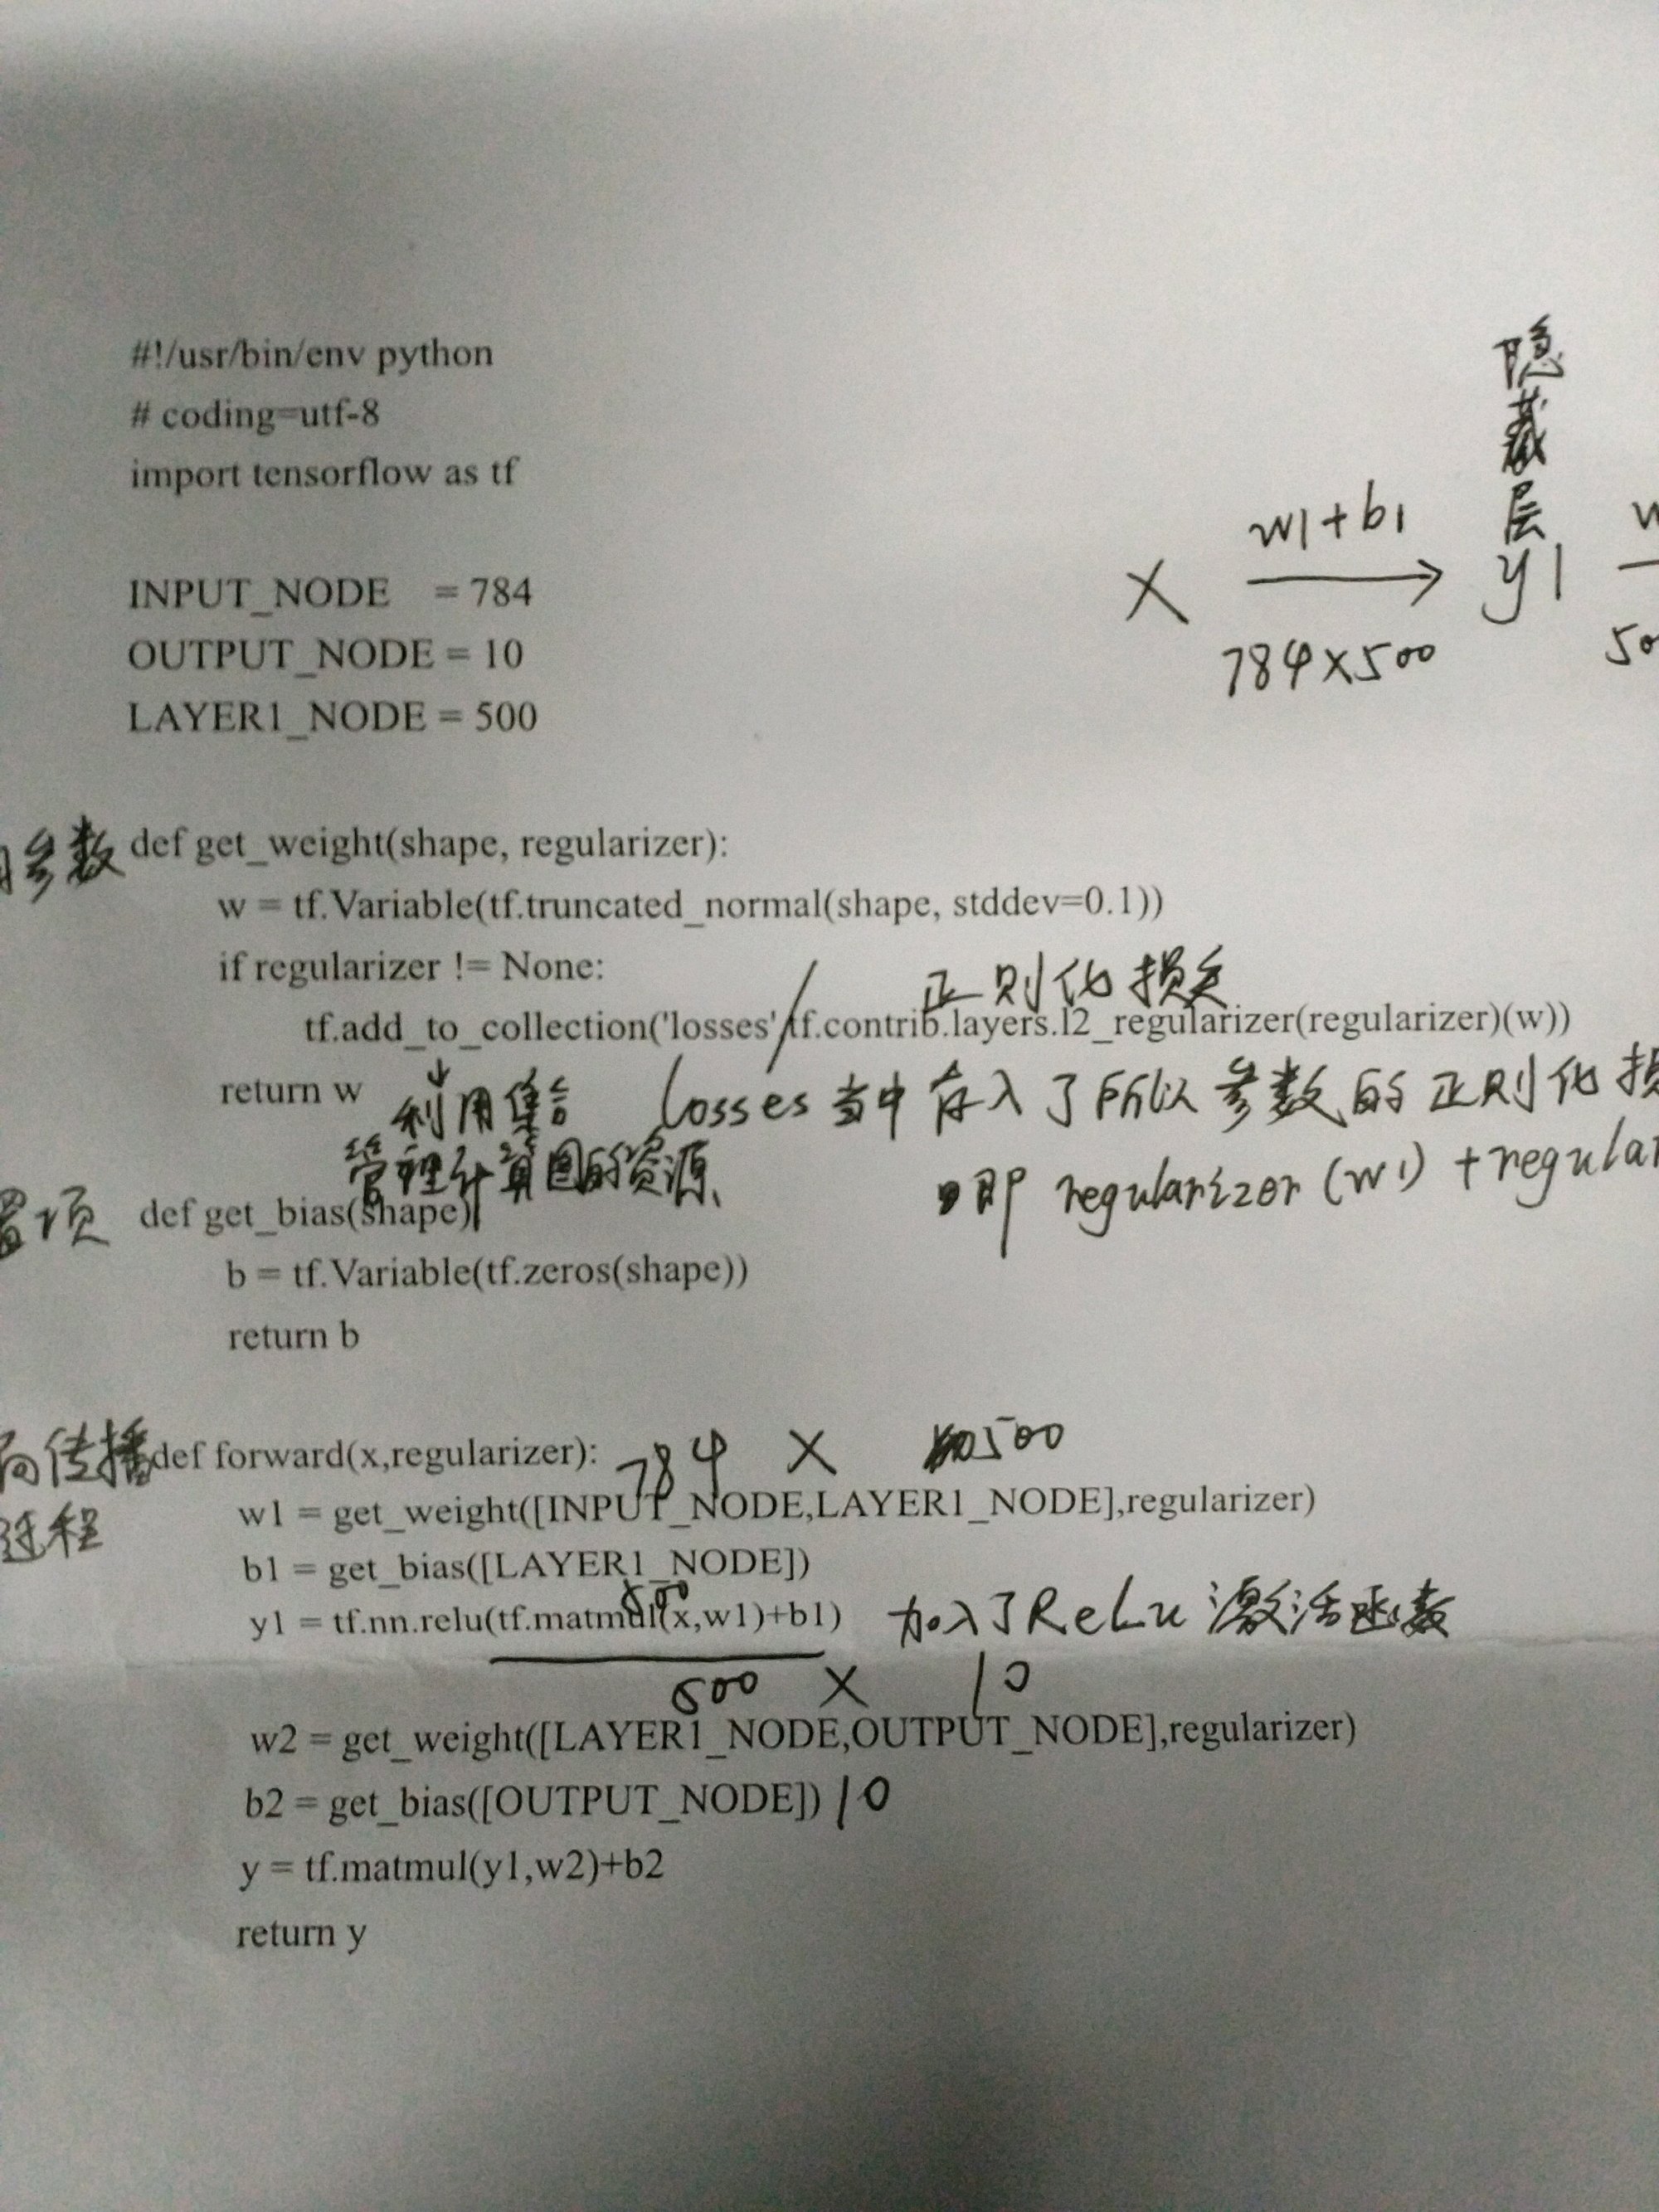 #!/usr/bin/env python
# coding=utf-8
import tensorflow as tf
隐
藏
层
w1+b1
X
y1
784×500
INPUT_NODE = 784
OUTPUT_NODE = 10
LAYER1_NODE = 500
参数
def get_weight(shape, regularizer):
w = tf.Variable(tf.truncated_normal(shape, stddev=0.1))
if regularizer != None:
正则化损失
tf.add_to_collection('losses', tf.contrib.layers.l2_regularizer(regularizer)(w))
return w
利用集合
管理计算图的资源、
losses当中存入了所以参数的正则化损
即 regularizer(w1)+regular
置项
def get_bias(shape):
b = tf.Variable(tf.zeros(shape))
return b
向传播
过程
def forward(x,regularizer):
784 × 500
w1 = get_weight([INPUT_NODE,LAYER1_NODE],regularizer)
b1 = get_bias([LAYER1_NODE])
500
y1 = tf.nn.relu(tf.matmul(x,w1)+b1)
加入了ReLu激活函数
500 × 10
w2 = get_weight([LAYER1_NODE,OUTPUT_NODE],regularizer)
b2 = get_bias([OUTPUT_NODE]) 10
y = tf.matmul(y1,w2)+b2
return y